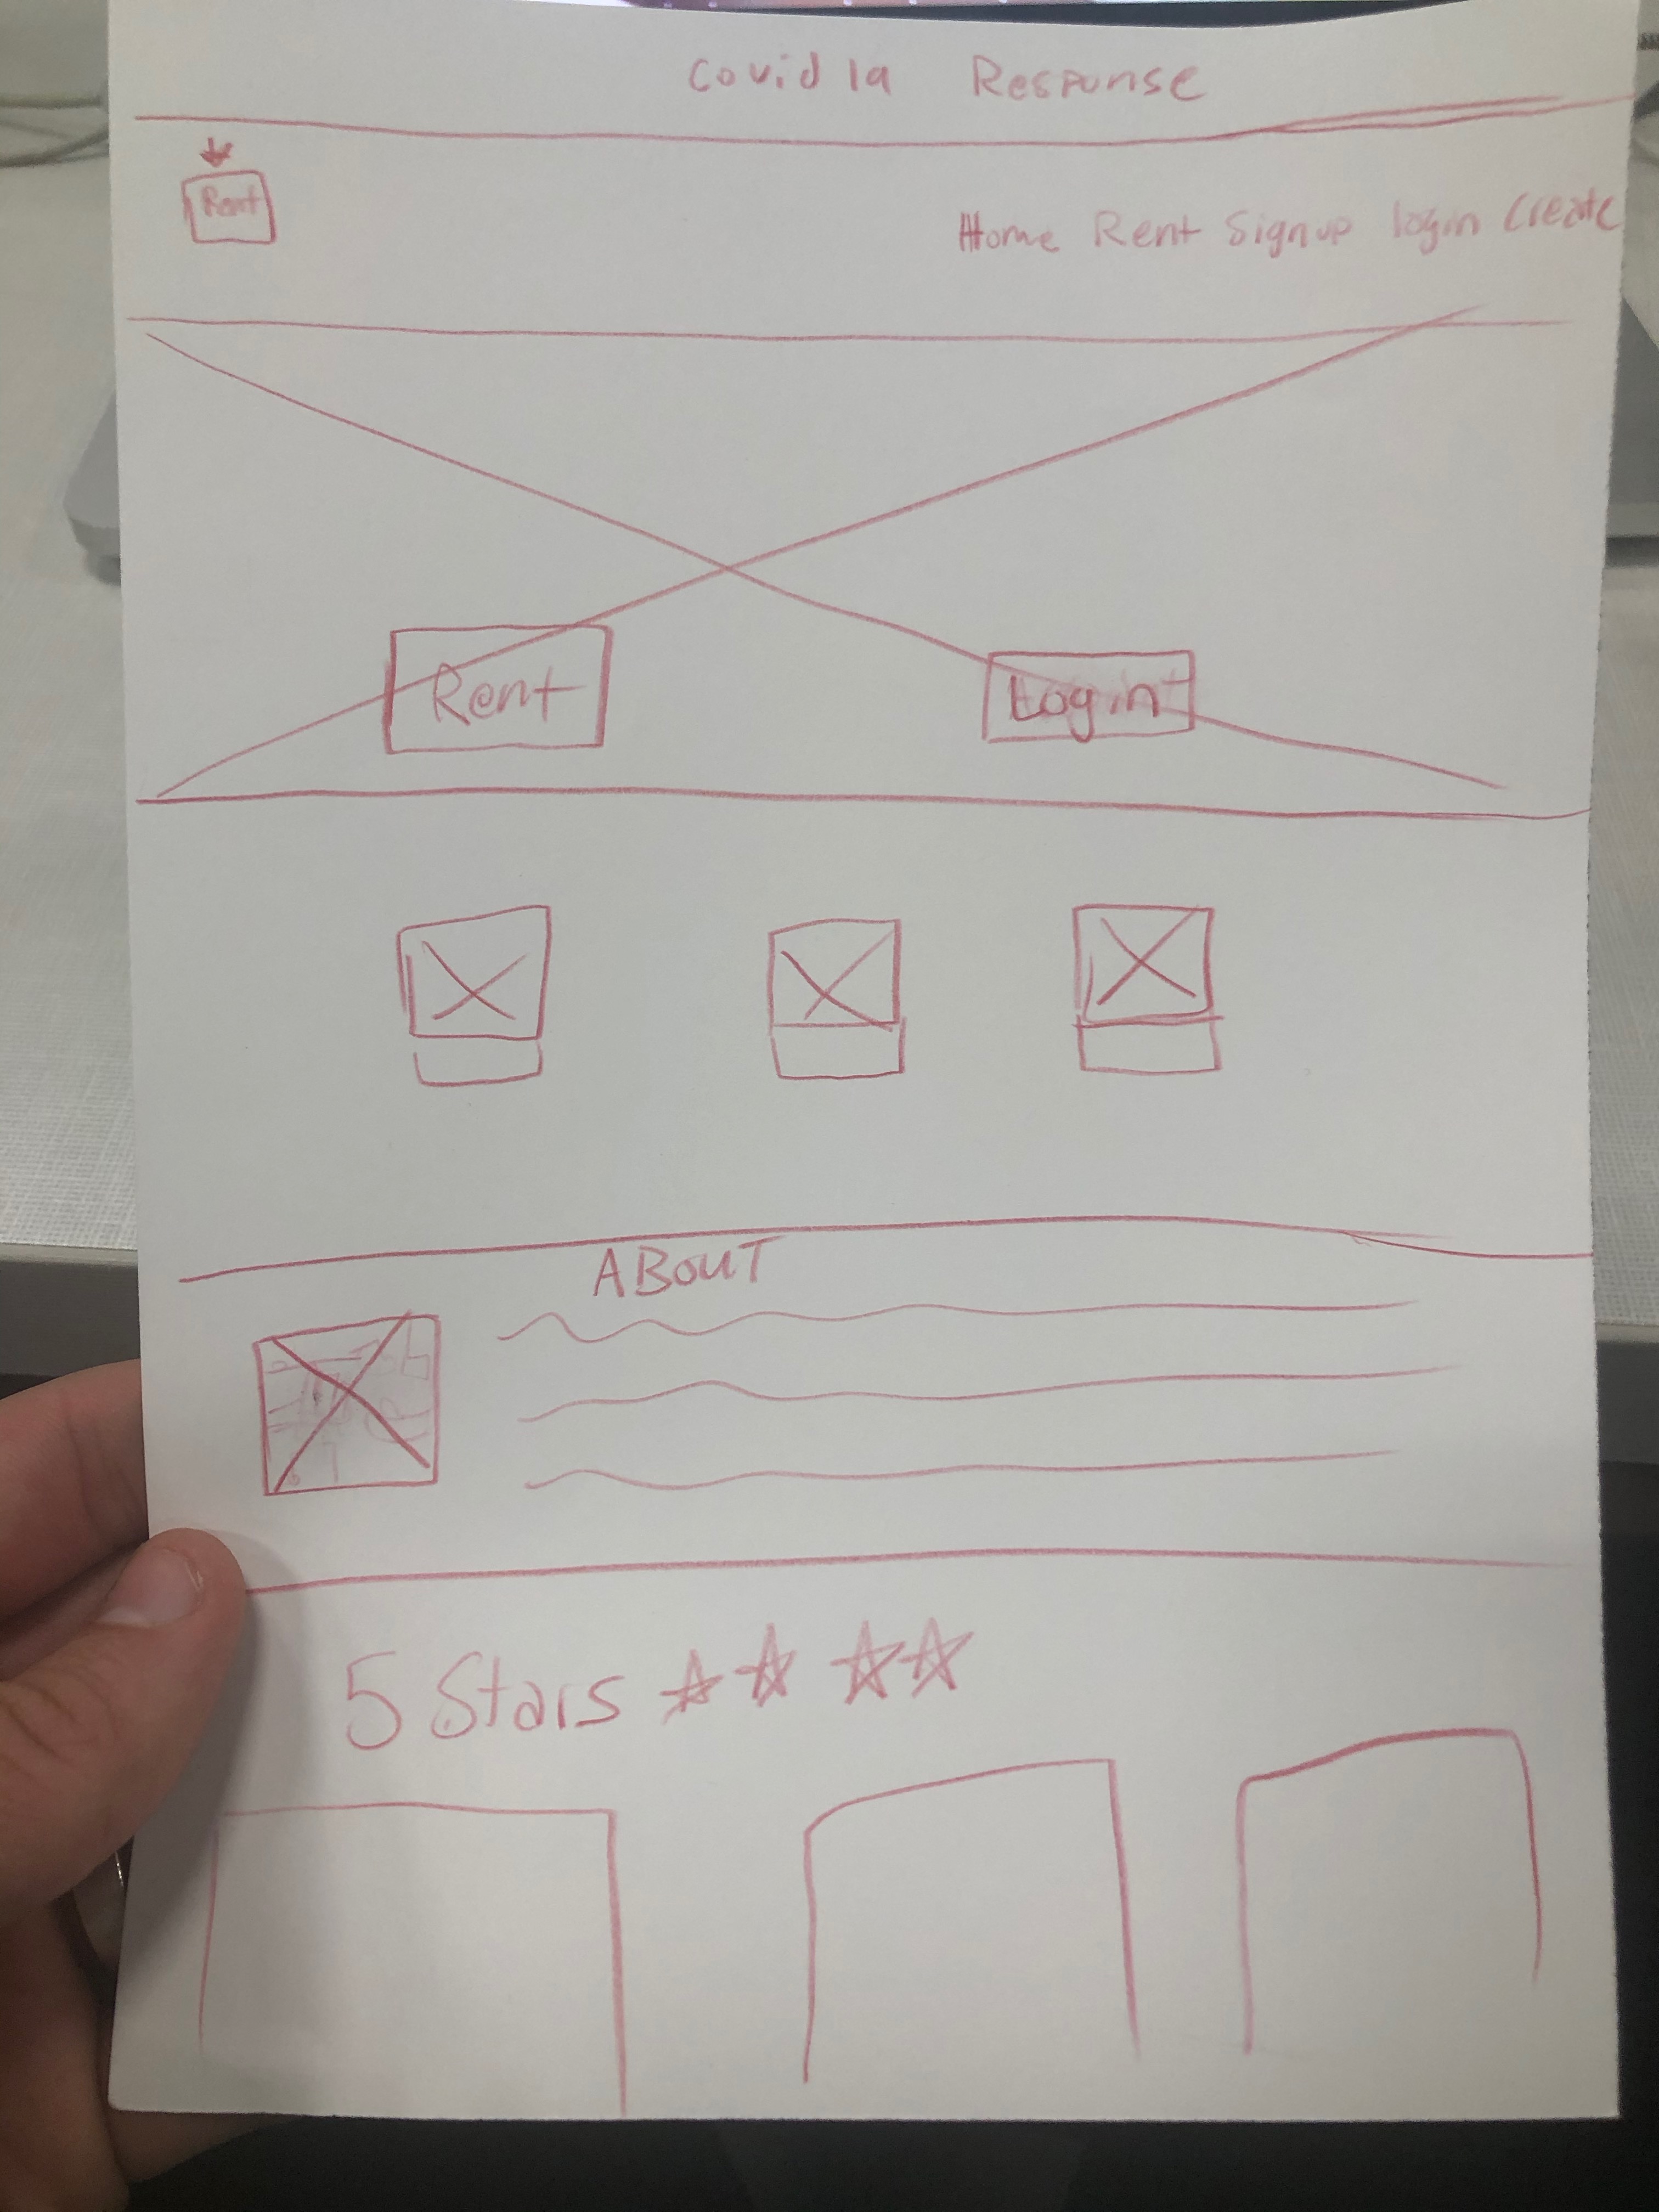 Covid 19 Response
Rent
Home Rent Signup login Create
Rent
Login
ABOUT
5 Stars